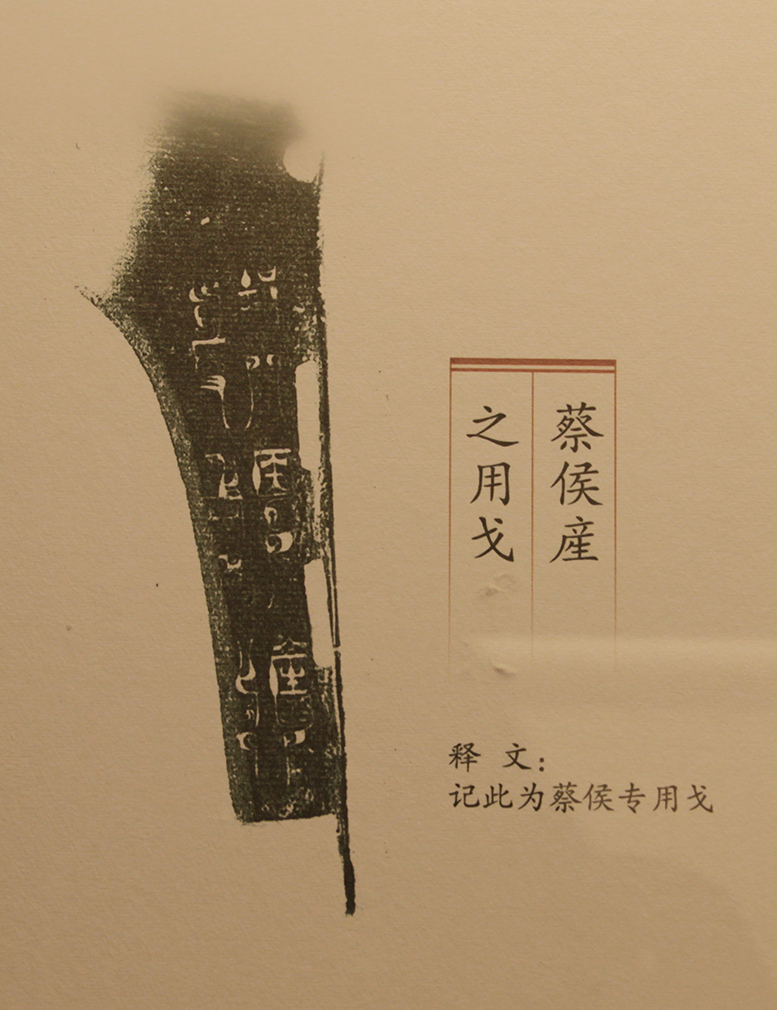 蔡侯産
之用戈
释文：
记此为蔡侯专用戈